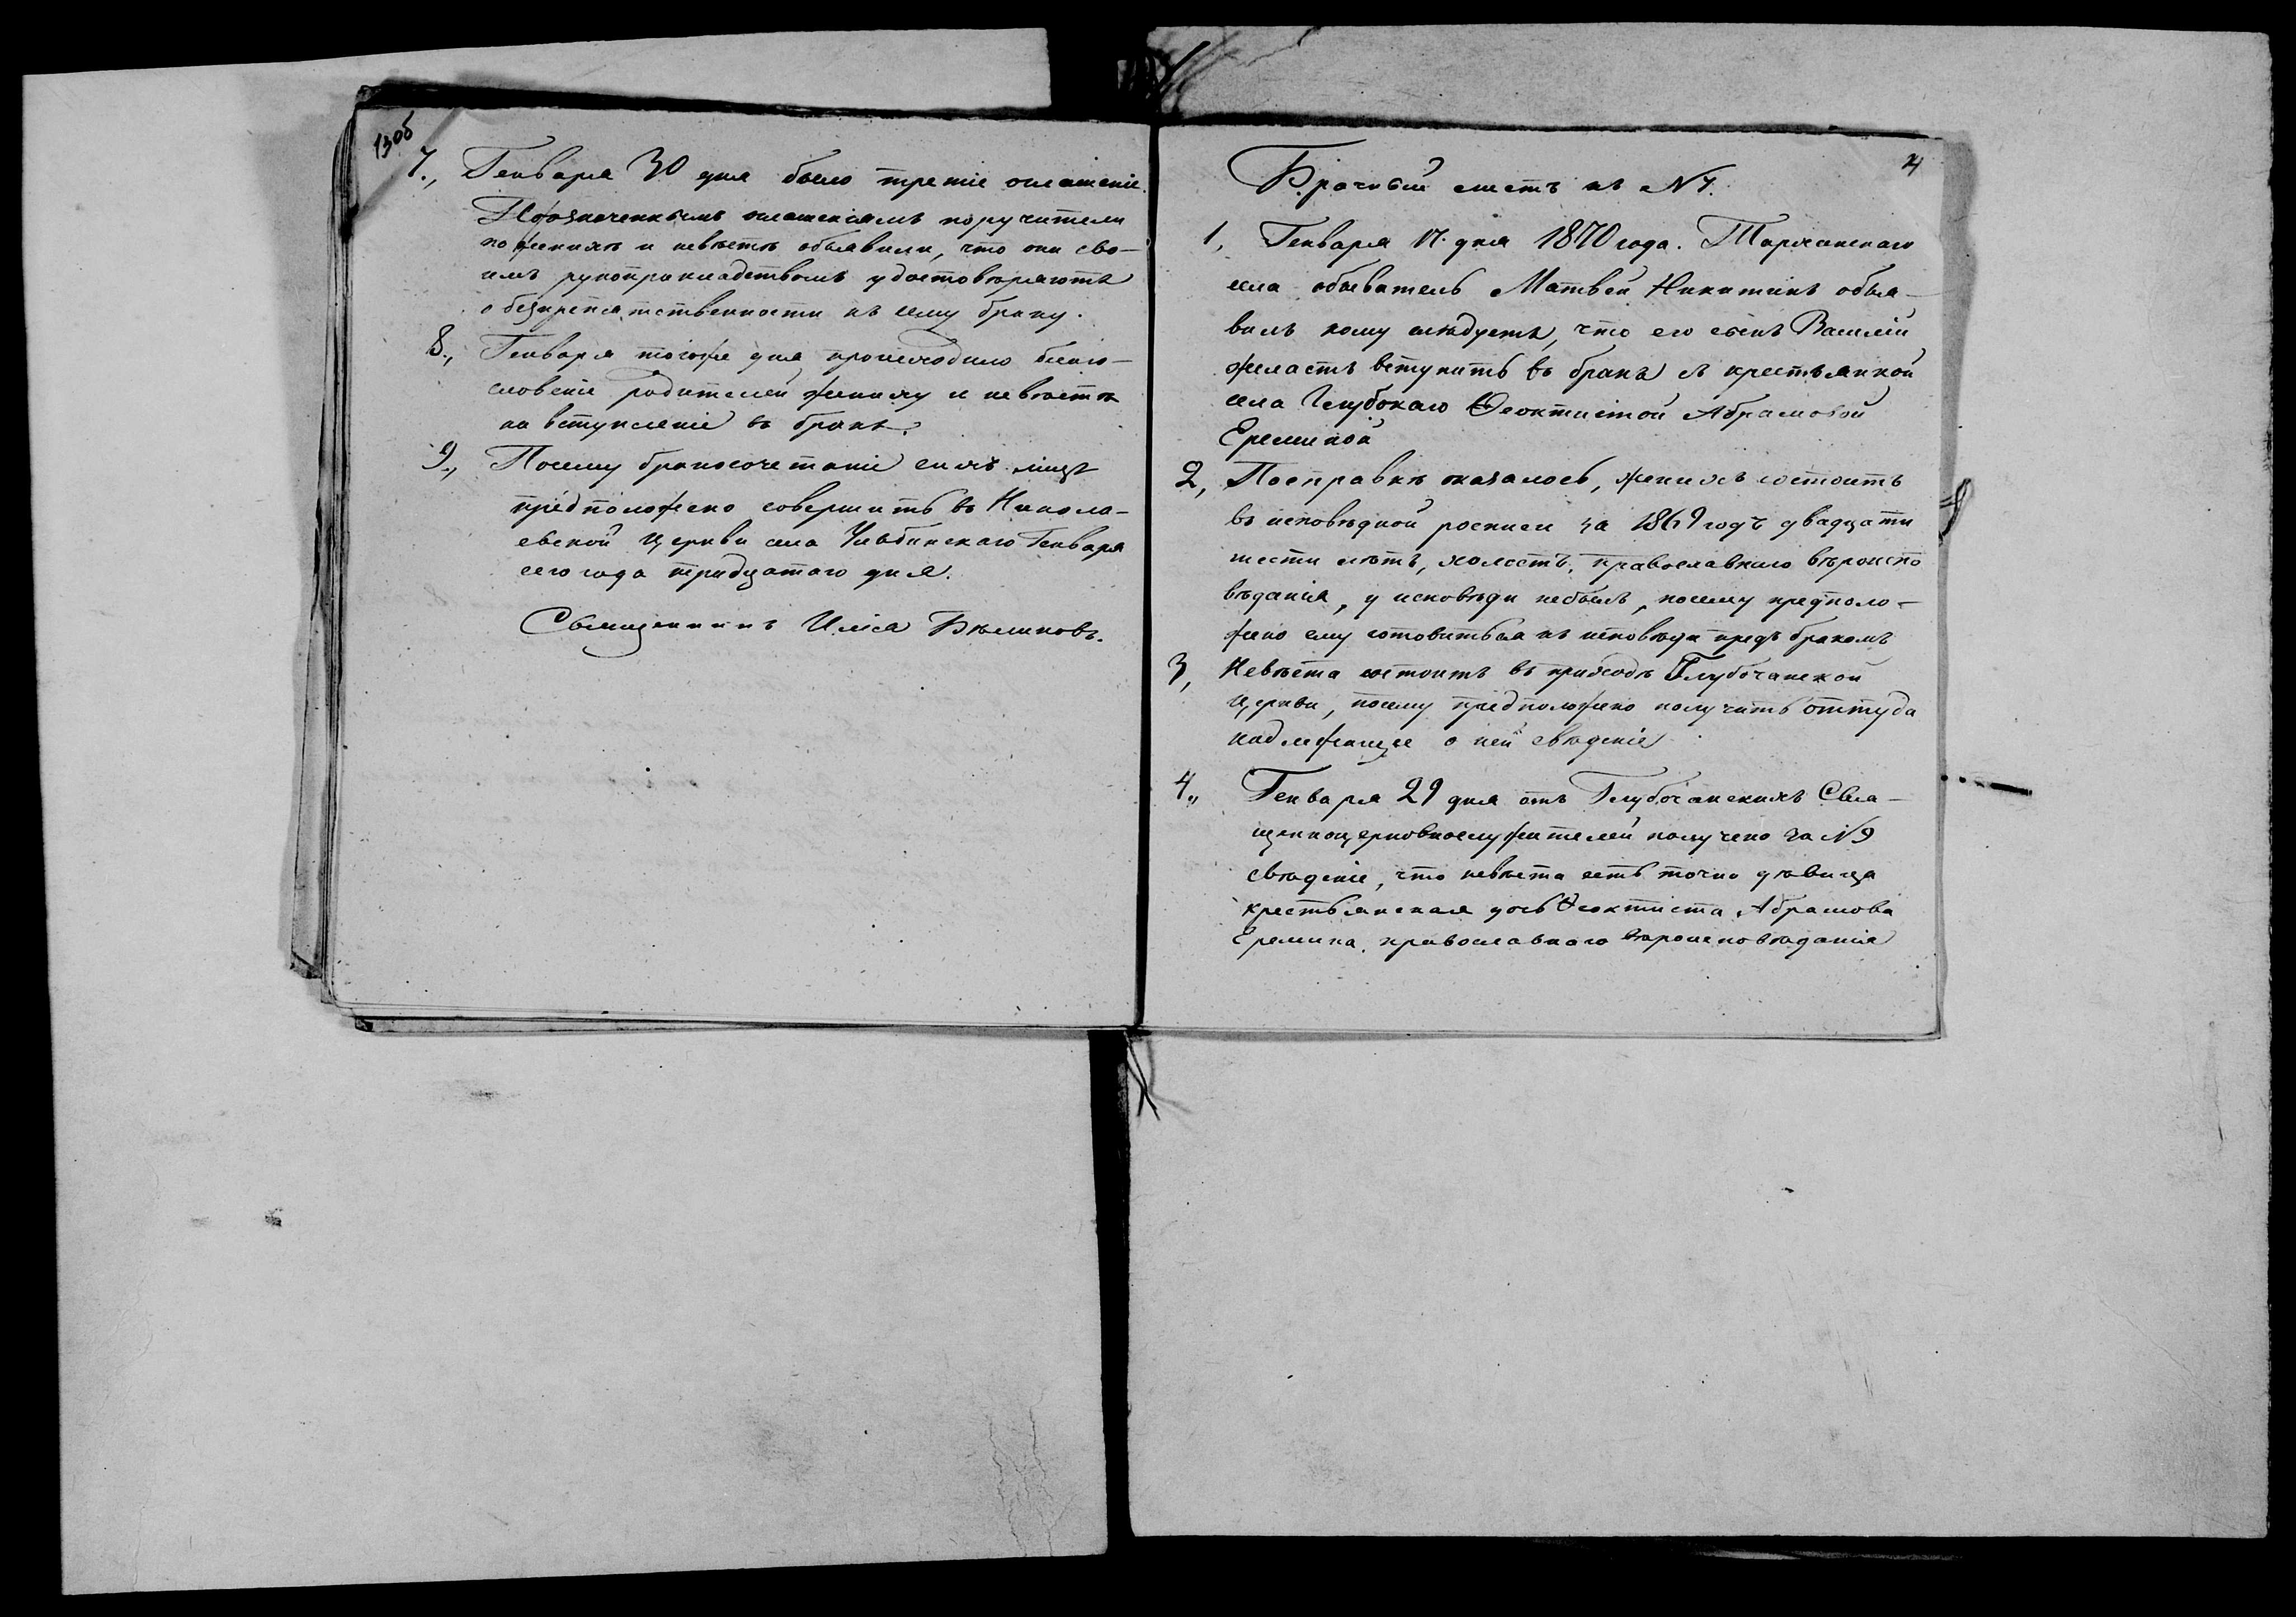 13об
7., Генваря 30 дня было третіе оглашеніе.
Пообозначеннымъ оглашеніямъ поручители
по женихѣ и невѣстѣ объявили, что они сво-
имъ рукоприкладствомъ удостовѣряютъ
о безпрепятственности къ сему браку.
8., Генваря тогоже дня происходило благо-
словеніе родителей жениху и невѣстѣ
на вступленіе въ бракъ.
9., Посему бракосочетаніе сихъ лицъ
предположено совершить въ Никола-
евской церкви села Ульбинскаго Генваря
сего года тридцатаго дня.
Священникъ Илія Бѣликовъ.
4
Брачный листъ къ №
1, Генваря 17. дня 1870 года.
села обыватель Матвей Никитинъ объя-
вилъ кому слѣдуетъ, что его сынъ Василій
желаетъ вступить въ бракъ съ крестьянкой
села Глубокаго Ѳеоктистой Абрамовой
Ереминой
2, Посправкѣ оказалось, женихъ состоитъ
въ исповѣдной росписи за 1869 годъ двадцати
шести лѣтъ, холостъ, православнаго вѣроиспо
вѣданія, у исповѣди небылъ, посему предполо-
жено ему готовиться къ исповѣди предъ бракомъ
3, Невѣста состоитъ въ приходѣ Глубочанской
церкви, посему предположено получить оттуда
надлежащее о ней свѣденіе
4., Генваря 29 дня отъ Глубочанскихъ Свя-
щенноцерковнослужителей получено за №9
свѣденіе, что невѣста есть точно дѣвица
крестьянская дочь Ѳеоктиста Абрамова
Еремина, православнаго вѣроисповѣданія